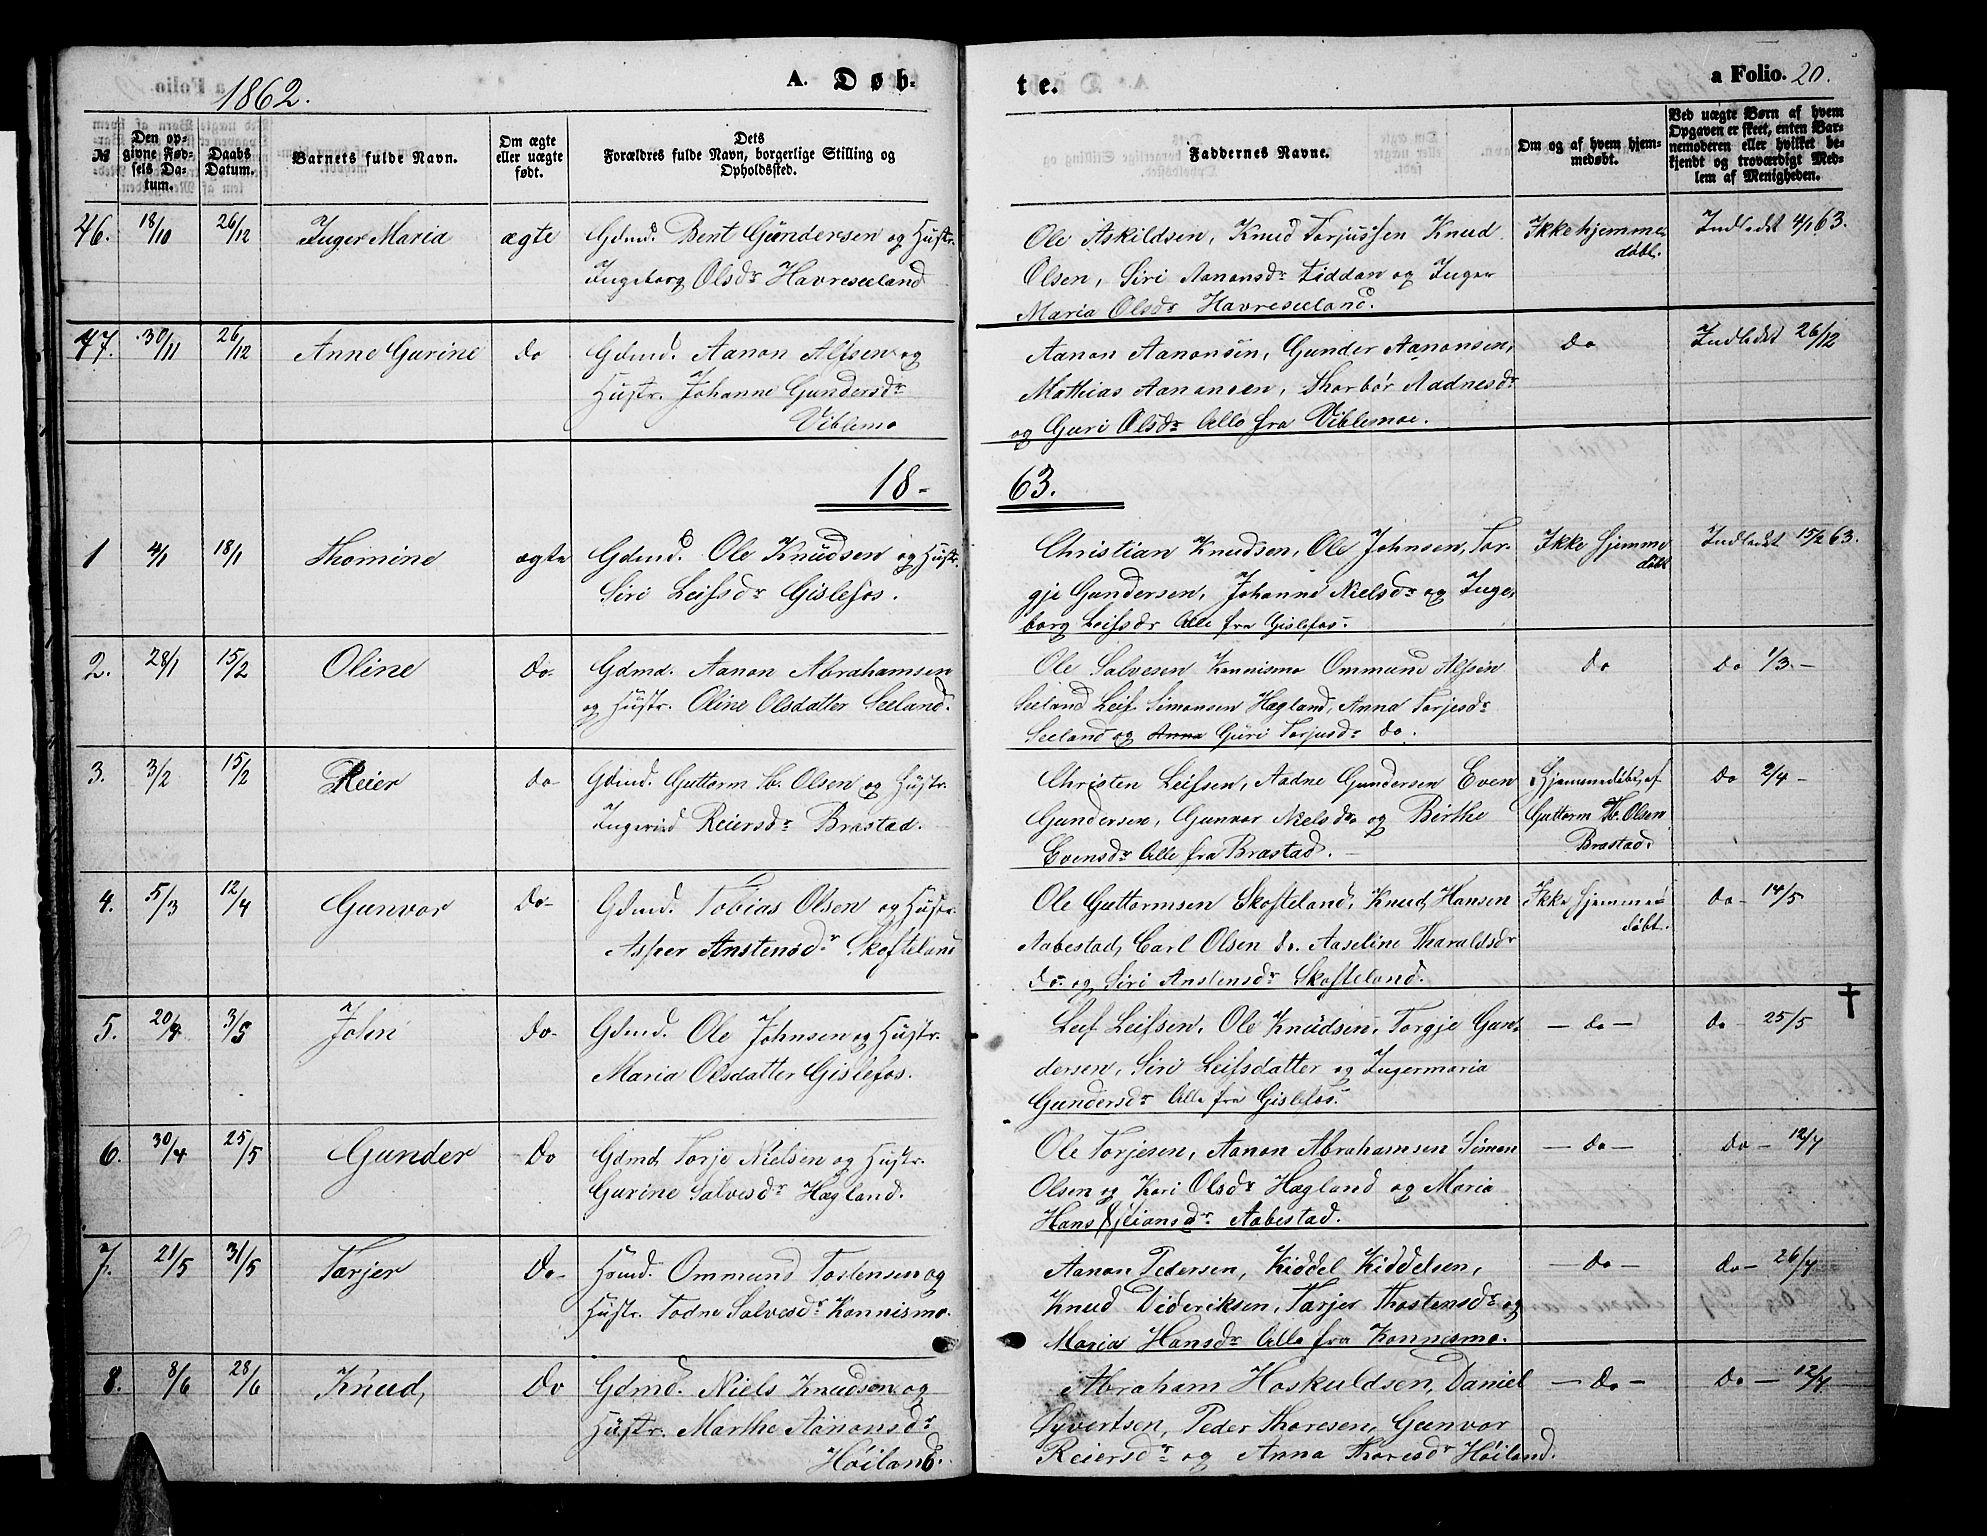 1862.
A. Døb-
te.
a Folio. 20.
№
Den op-
givne Fød-
sels Da-
tum.
Daabs
Datum.
Barnets fulde Navn.
Om ægte
eller uægte
født.
Dets
Forældres fulde Navn, borgerlige Stilling og
Opholdssted.
Faddernes Navne.
Om og af hvem hjem-
medøbt.
Ved uægte Børn af hvem
Opgaven er skeet, enten Bar-
nemoderen eller hvilket be-
kjendt og troværdigt Med-
lem af Menigheden.
46. 18/10 26/12 Inger Maria ægte Gdmd. Bent Gundersen og Hustr.
Ingeborg Olsdr Havreseeland
Ole Askildsen, Knud Torjussen Knud
Olsen, Siri Aanonsdr Liddan og Inger
Maria Olsdr Havreseeland.
Ikke hjemme-
døbt.
Indledet 4/1 63.
47. 30/11 26/12 Anne Gurine do Gdmd. Aanon Alfsen og
Hustr. Johanne Gundersdr
Viblemo
Aanon Aanonsen, Gunder Aanonsen,
Mathias Aanonsen, Thorbør Aadnesdr
og Guri Olsdr Alle fra Viblemoe.
do
Indledet 26/12
18-63.
1 4/1 18/1 Thomine ægte Gdmd. Ole Knudsen og Hustr.
Siri Leifsdr Gislefos.
Christian Knudsen, Ole Johnsen, Tor-
gje Gundersen, Johanne Nielsdr og Inge-
borg Leifsdr Alle fra Gislefos.
Ikke hjemme
døbt
Indledet 15/2 63.
2. 28/1 15/2 Oline do- Gdmd. Aanon Abrahamsen
og Hustr. Oline Olsdatter Seeland.
Ole Salvesen Konnismo Ommund Alfsen
Seeland Leif Simonsen Hægland, Anna Torjesdr
Seeland og Anna Guri Torjusdr do.
do
do 1/3.-
3. 3/2 15/2 Reier do- Gdmd. Guttorm Th. Olsen og Hustr.
Ingerid Reiersdr Brastad.
Christen Leifsen, Aadne Gundersen Even
Gundersen, Gunvor Nielsdr og Birthe
Evensdr Alle fra Brastad.
Hjemmedøbt af
Guttorm Th. Olsen
Brastad.
do 2/4 -
4. 5/3 12/4 Gunvor Do- Gdmd. Tobias Olsen og Hustr.
Asper Anstensdr Skofteland
Ole Guttormsen Skofteland, Knud Hansen
Aabestad, Carl Olsen do. Aaseline Tharaldsdr
do- og Siri Anstensdr Skofteland.
Ikke hjemme-
døbt.
do- 14/5
5. 20/4 3/5 John Do- Gdmd. Ole Johnsen og Hustr.
Maria Olsdatter Gislefos.
Leif Leifsen, Ole Knudsen, Torgje Gun-
dersen, Siri Leifsdatter og Ingermaria
Gundersdr Alle fra Gislefos.
- do -
do - 25/5 †
6. 30/4 25/5 Gunder Do Gdmd. Torje Nielsen og Hustr.
Gurine Salvesdr Hægland.
Ole Torjesen, Aanon Abrahamsen Simon
Olsen og Kari Olsdr Hægland og Maria
Hans Aabestad.
- do -
do - 12/7
7. 21/5 31/5 Tarjer Do- Hsmd. Ommund Tostensen og
Hustr. Todne Salvesdr Konnismo.
Aanon Pedersen, Kiddel Kiddelsen,
Knud Dideriksen, Tarjer Thostensdr og
Maria Hansdr Alle fra Konnesmo.
- do -
do - 26/7
8. 8/6 28/6 Knud, Do Gdmd. Niels Knudsen og
Hustr. Marthe Aanonsdr
Høiland.
Abraham Hoskuldsen, Daniel
Syvertsen, Peder Thoresen, Gunvor
Reiersdr og Anna Thoresdr Høiland.
- do -
do - 12/7